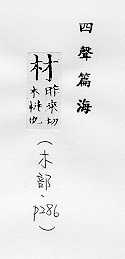 四聲篇海
材
昨來切
木料也
(木部、p286)